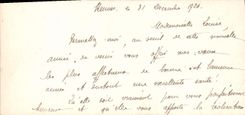 le 31 Décembre 1920.
Mademoiselle Louise
Permettez moi, au seuil de cette nouvelle
année, de venir vous offrir mes vœux
les plus affectueux de bonne et heureuse
année et surtout une excellente santé
elle soit vraiment pour vous
et qu'elle vous apporte la